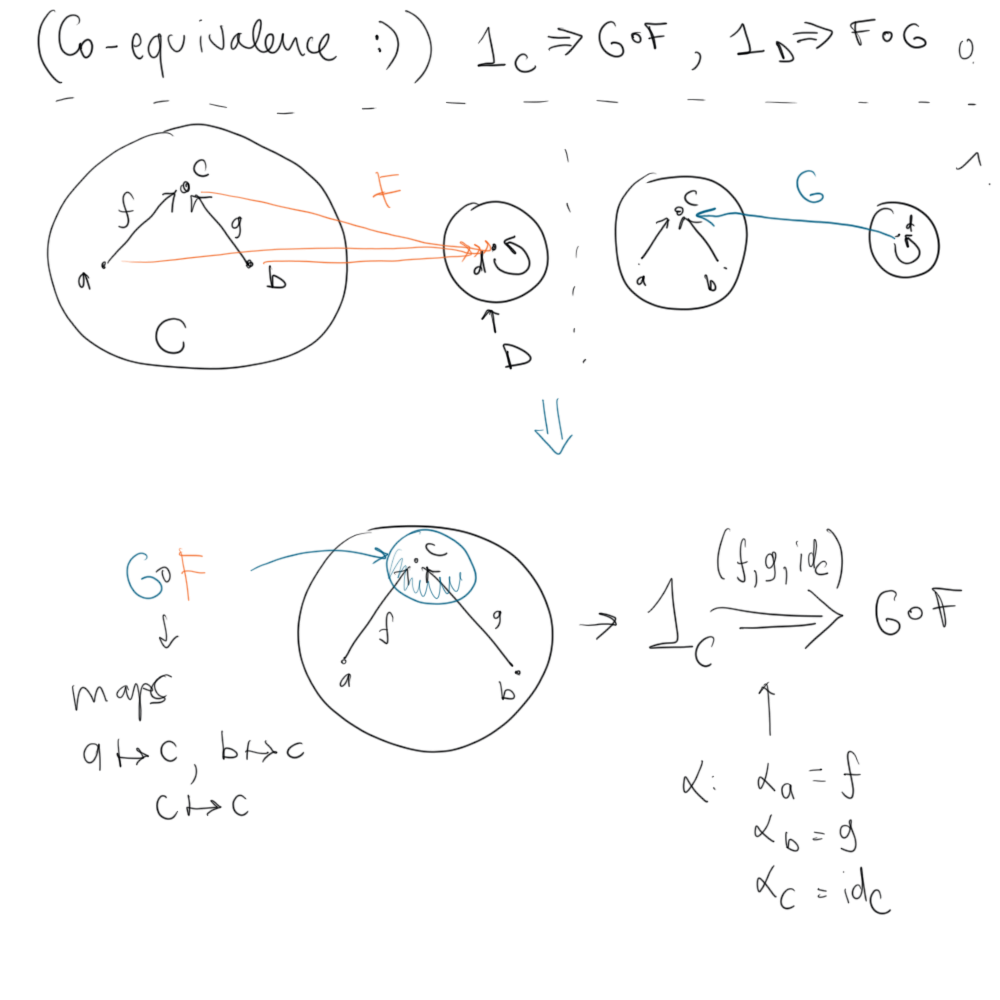 (Co-equivalence :)) 1_C ⇒ G∘F , 1_D ⇒ F∘G
c
f
g
a
b
C
F
d
D
c
a
b
G
d
G∘F
maps
a ↦ c, b ↦ c
c ↦ c
c
f
g
a
b
→ 1_C ⇒ G∘F
(f, g, id_C)
α: α_a = f
α_b = g
α_C = id_C